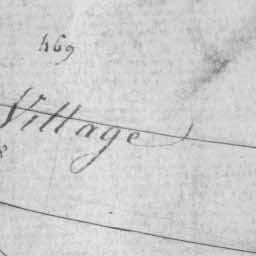 469
Village